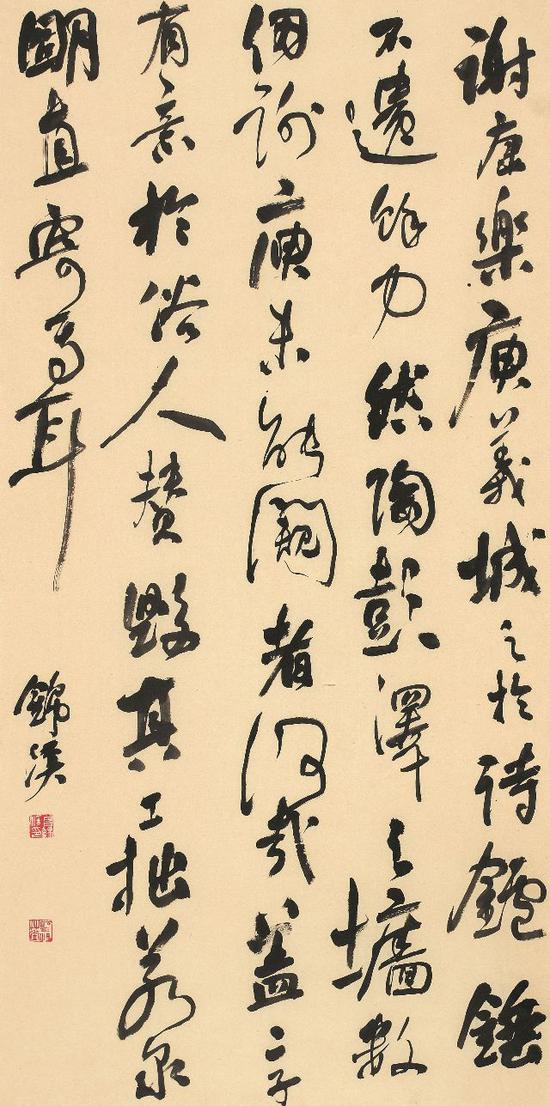 謝康樂庾義城之於詩鑪錘
不遺餘力然陶彭澤之墻數
仞謝庾未能闚者何哉蓋二子
有意於俗人贊毀其工拙若泉
朙直寄焉耳
錦溪